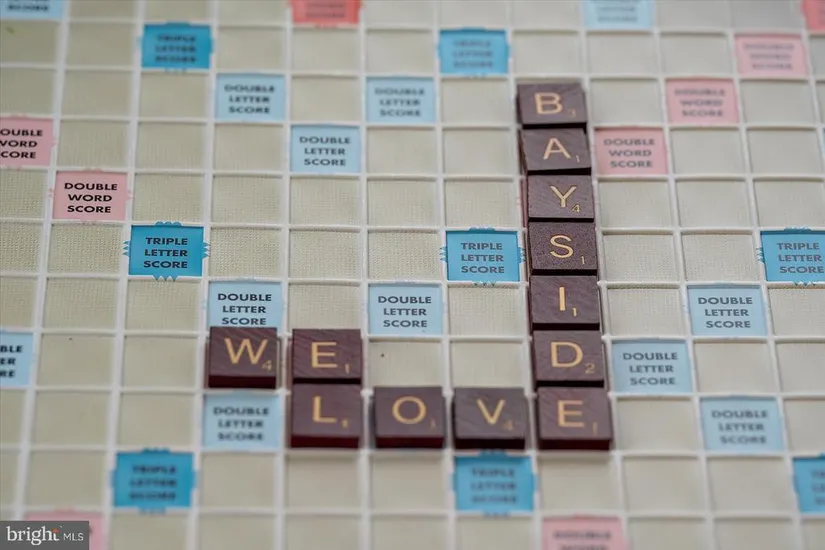 TRIPLE LETTER SCORE
TRIPLE LETTER SCORE
DOUBLE WORD SCORE
DOUBLE LETTER SCORE
DOUBLE LETTER SCORE
DOUBLE WORD SCORE
B 3
DOUBLE WORD SCORE
DOUBLE LETTER SCORE
A 1
DOUBLE WORD SCORE
DOUBLE WORD SCORE
Y 4
TRIPLE LETTER SCORE
TRIPLE LETTER SCORE
S 1
TRIPLE LETTER SCORE
DOUBLE LETTER SCORE
DOUBLE LETTER SCORE
I 1
DOUBLE LETTER SCORE
W 4 E 1 D 2
DOUBLE LETTER SCORE
DOUBLE LETTER SCORE
L 1 O 1 V 4 E 1
DOUBLE LETTER SCORE
TRIPLE LETTER SCORE
TRIPLE LETTER SCORE
bright MLS